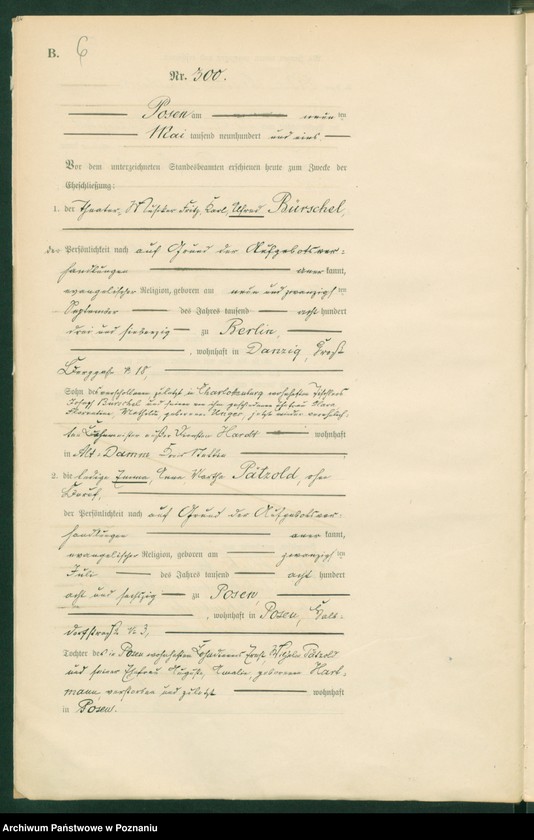 B. 6
Nr. 300.
Posen am neun ten
Mai tausend neunhundert und eins.
Vor dem unterzeichneten Standesbeamten erschienen heute zum Zwecke der
Eheschließung:
1. der Theater-Musiker Fritz, Carl, Alfred Bürschel,
der Persönlichkeit nach auf Grund der Aufgebotsver-
handlungen anerkannt,
evangelischer Religion, geboren am neun und zwanzigsten
September des Jahres tausend acht hundert
drei und siebenzig zu Berlin,
, wohnhaft in Danzig,
18,
Sohn des verschollenen zuletzt in Charlottenburg wohnhaften
Josef Bürschel und seiner von ihm geschiedenen Ehefrau Clara
Mathilde geborenen
Hardt wohnhaft
in Alt-Damm, Kreis
2. die ledige Emma, Martha Pätzold, ohne
Beruf,
der Persönlichkeit nach auf Grund der Aufgebotsver-
handlungen anerkannt,
evangelischer Religion, geboren am zwanzigsten
Juli des Jahres tausend acht hundert
acht und sechzig zu Posen,
, wohnhaft in Posen,
dorfstraße No 3,
Tochter des in Posen wohnhaften Pätzold
und seiner Ehefrau Auguste, Amalie, geborenen Hart-
mann, verstorben und zuletzt wohnhaft
in Posen.
Archiwum Państwowe w Poznaniu